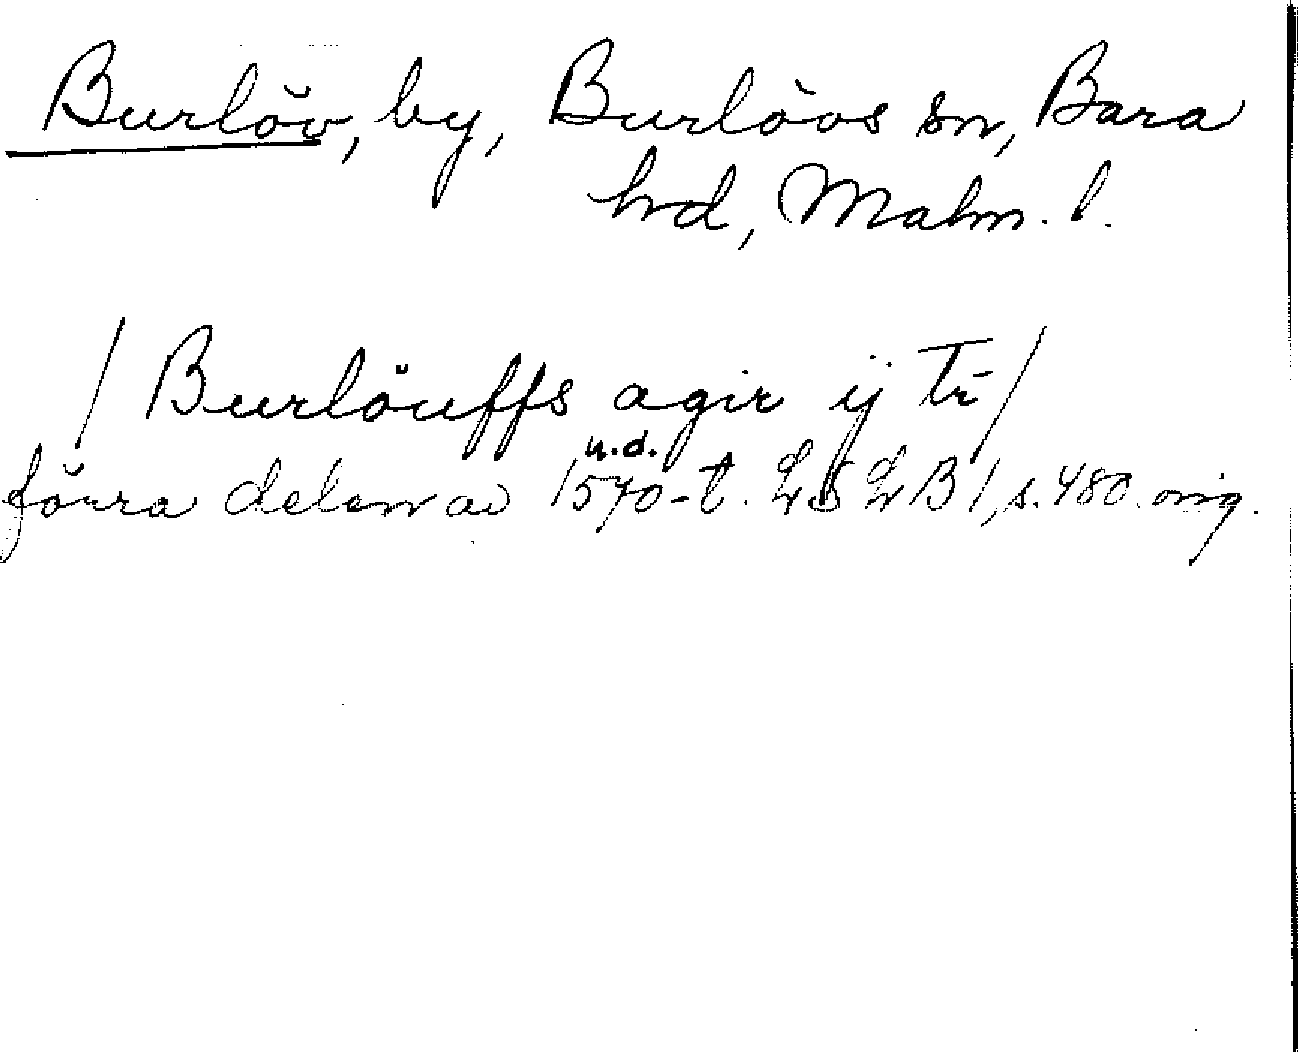 Burlöv, by, Burlövs sn, Bara
hd, Malm. l.
/ Burlöuffs agir ij tr /
u.d.
förra delen av 1570-t. LSLB 1, s. 480. orig.